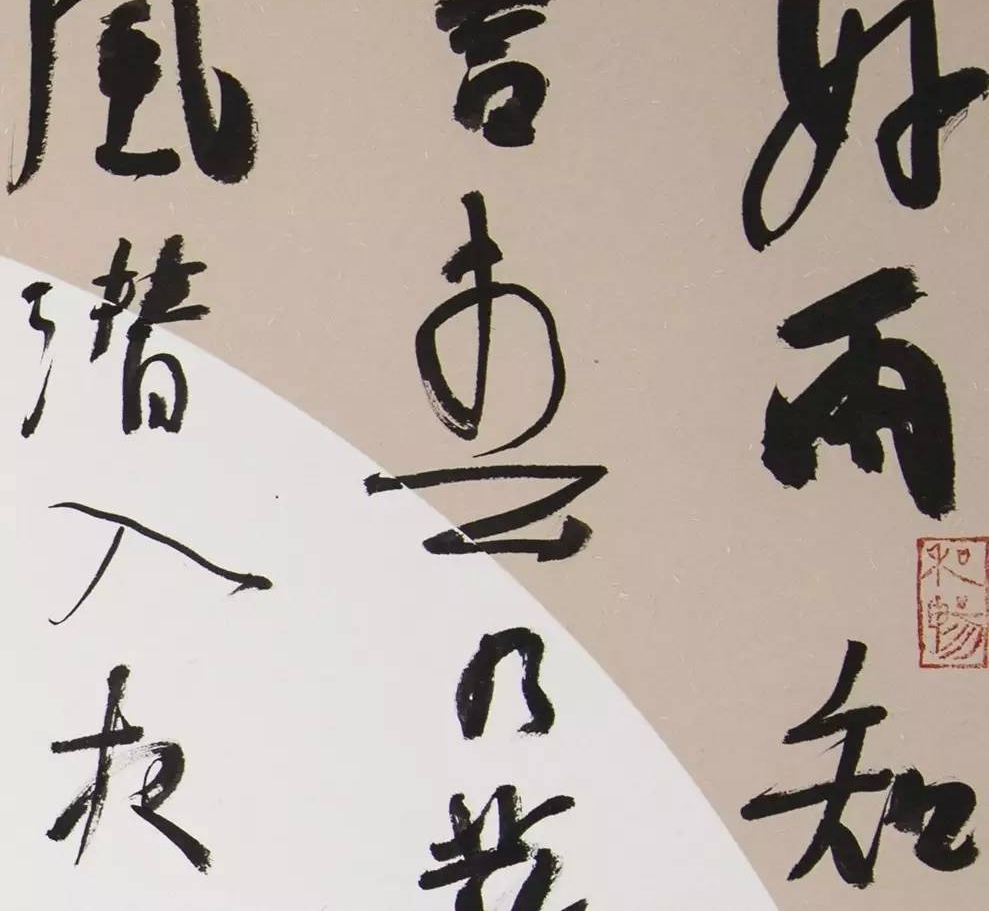 好雨知
當春乃發
風潜入夜
和暢